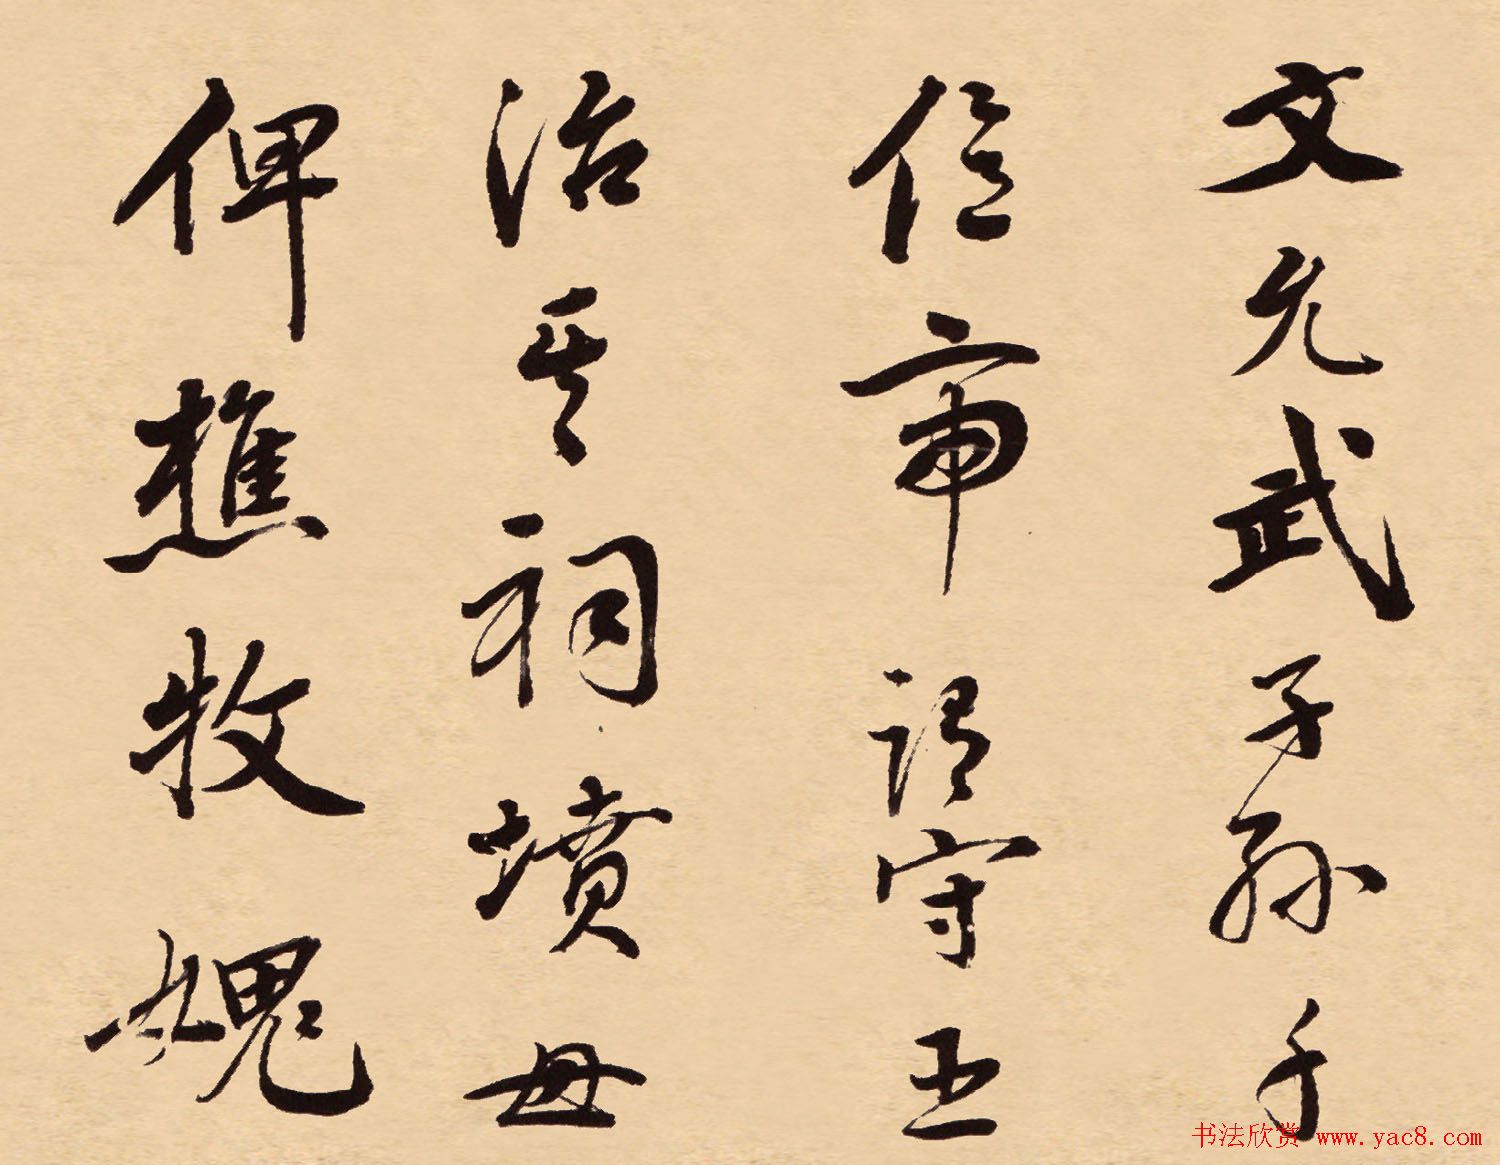 文允武子孫千
億帝謂守臣
治其祠墳毋
俾樵牧媿
书法欣赏 www.yac8.com